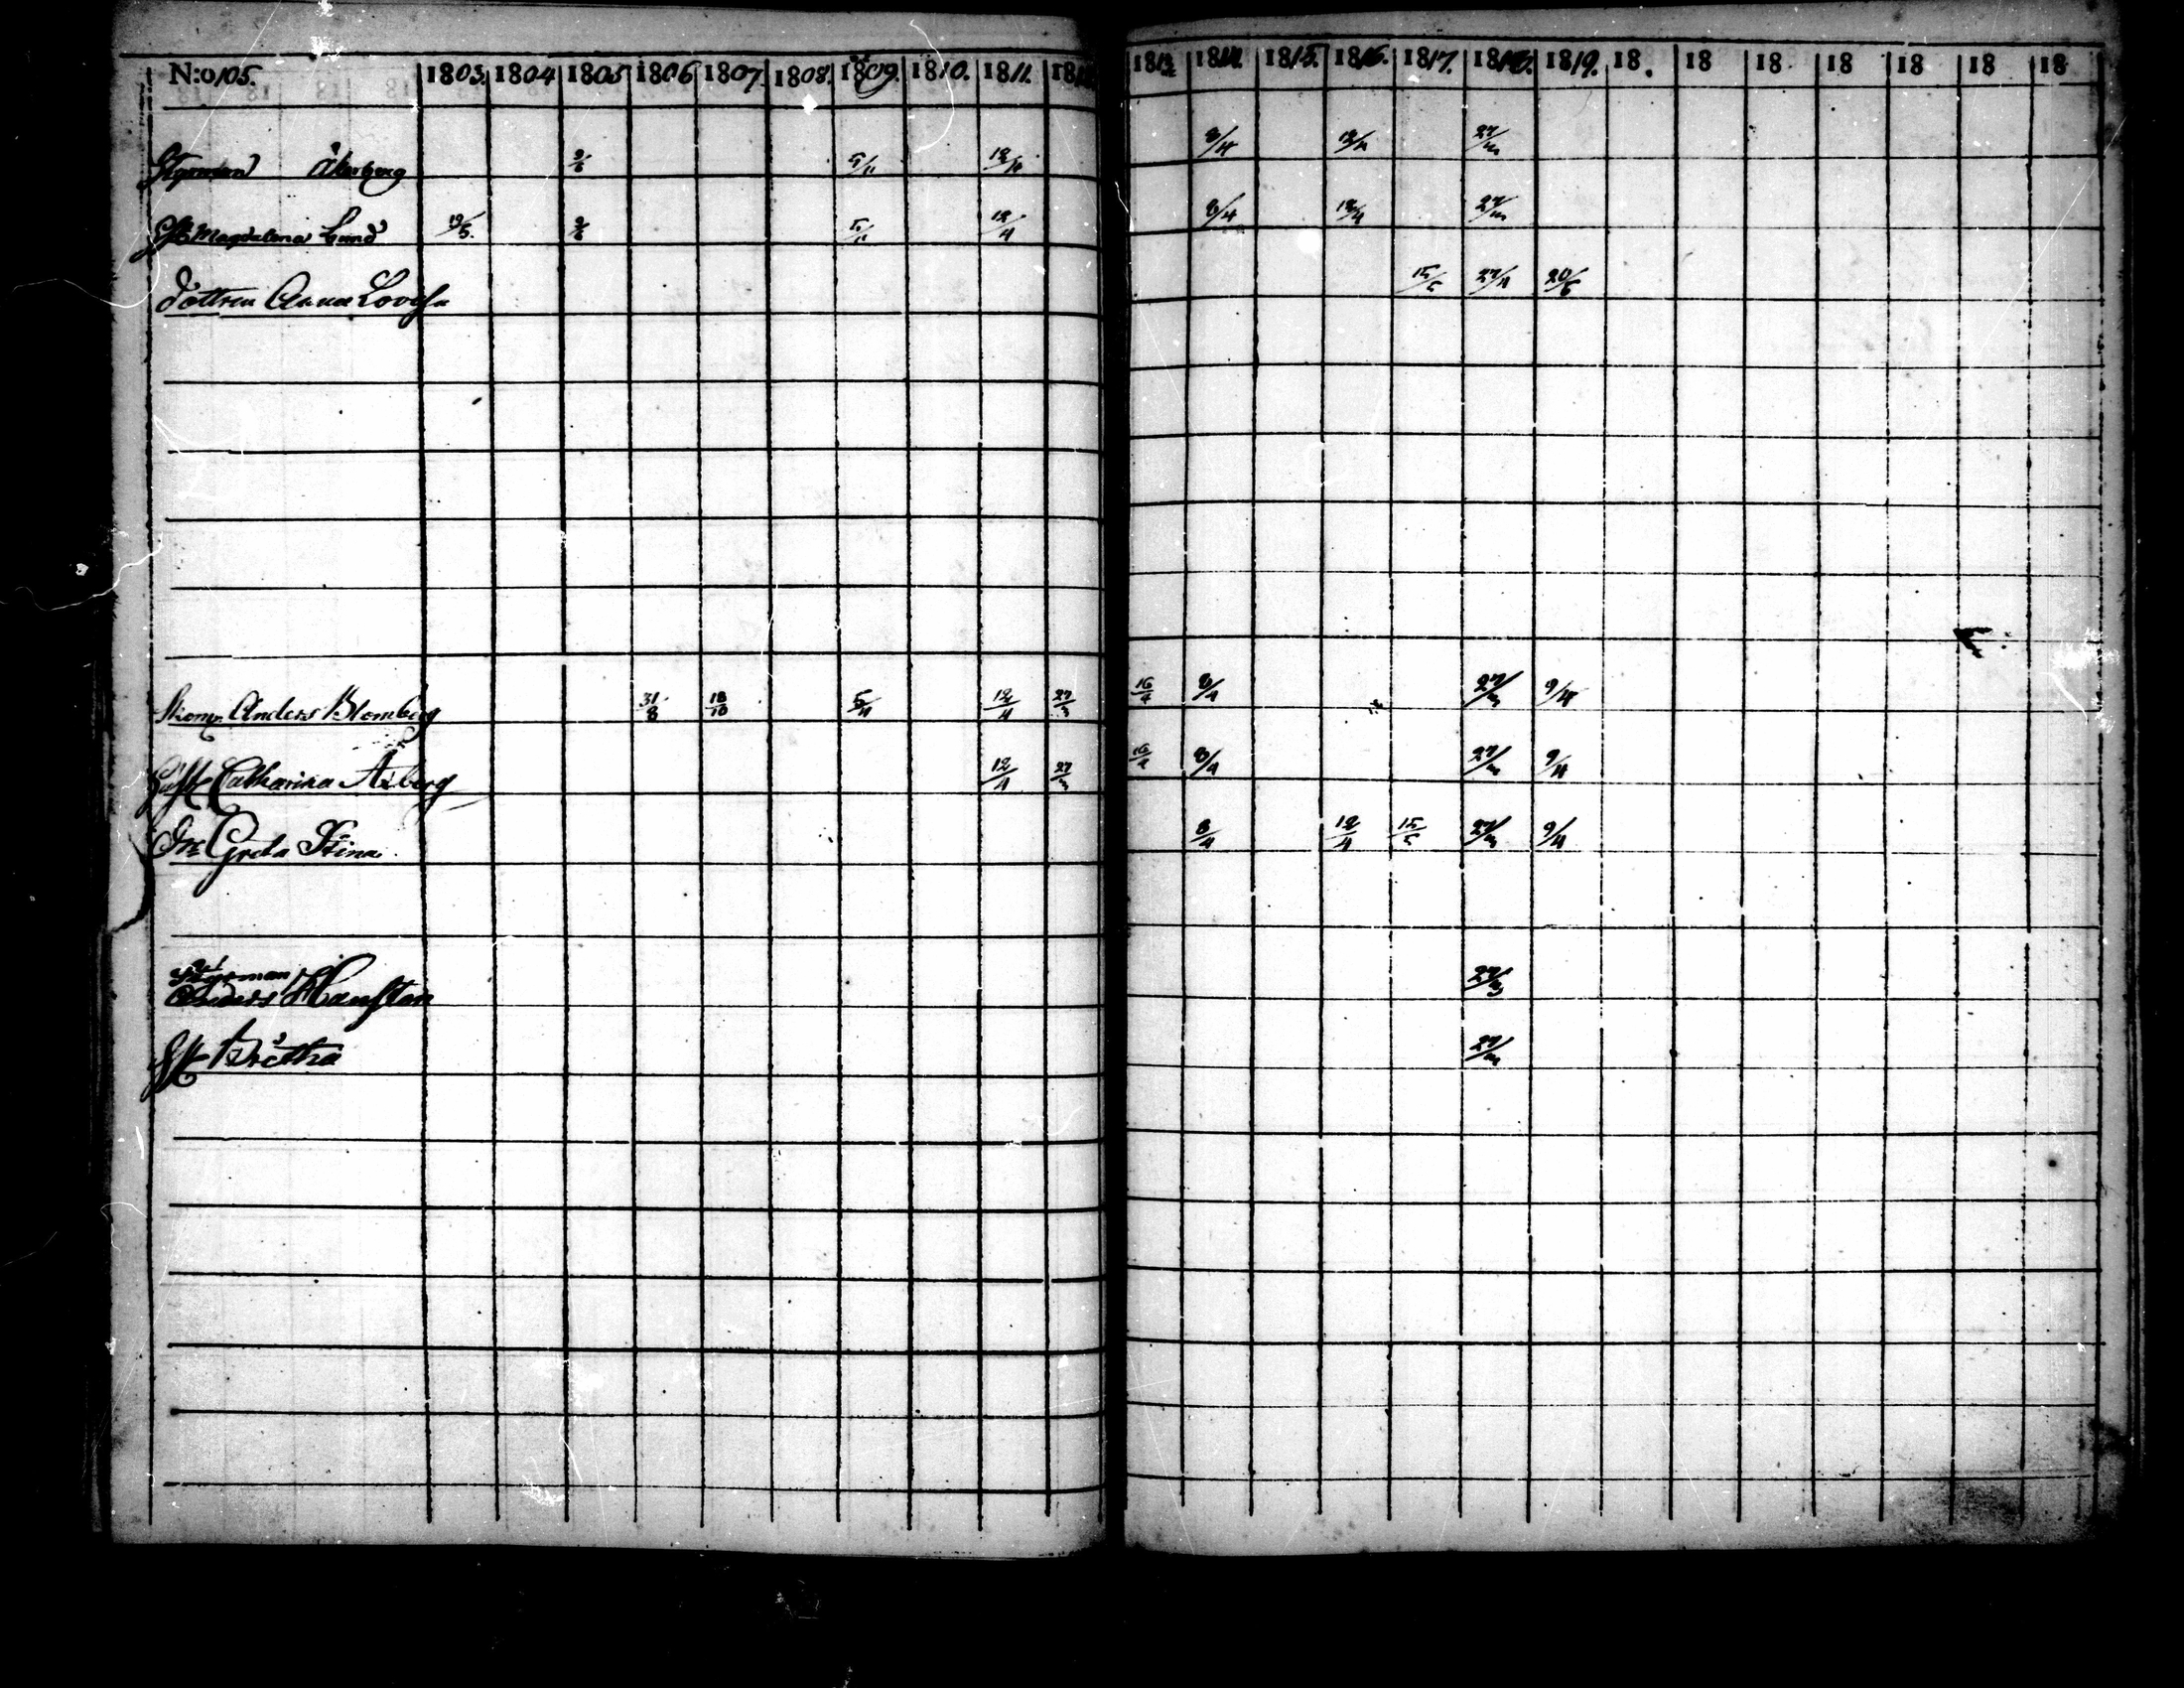 N:o 105. 1803. 1804 1805 1806 1807. 1808. 1809. 1810. 1811. 1812 1813 1814. 1815. 1816. 1817. 1818. 1819. 18 18 18 18 18 18 18
Styrman Åkerberg 9/6 5/11 12/4 8/4 12/4 27/3
Magdalena Lund 19/5. 9/6 5/11 12/4 8/4 12/4 27/3
dottren Anna Lovisa 15/5 27/3 20/6
Anders Blomberg 31/8 18/10 5/11 12/4 27/3 16/4 8/4 27/3 9/4
Hust Catharina Åberg 12/4 27/3 16/4 8/4 27/3 9/4
Dr Greta Stina 8/4 12/4 15/5 27/3 9/4
Styrman
Anders 27/3
Britha 27/3